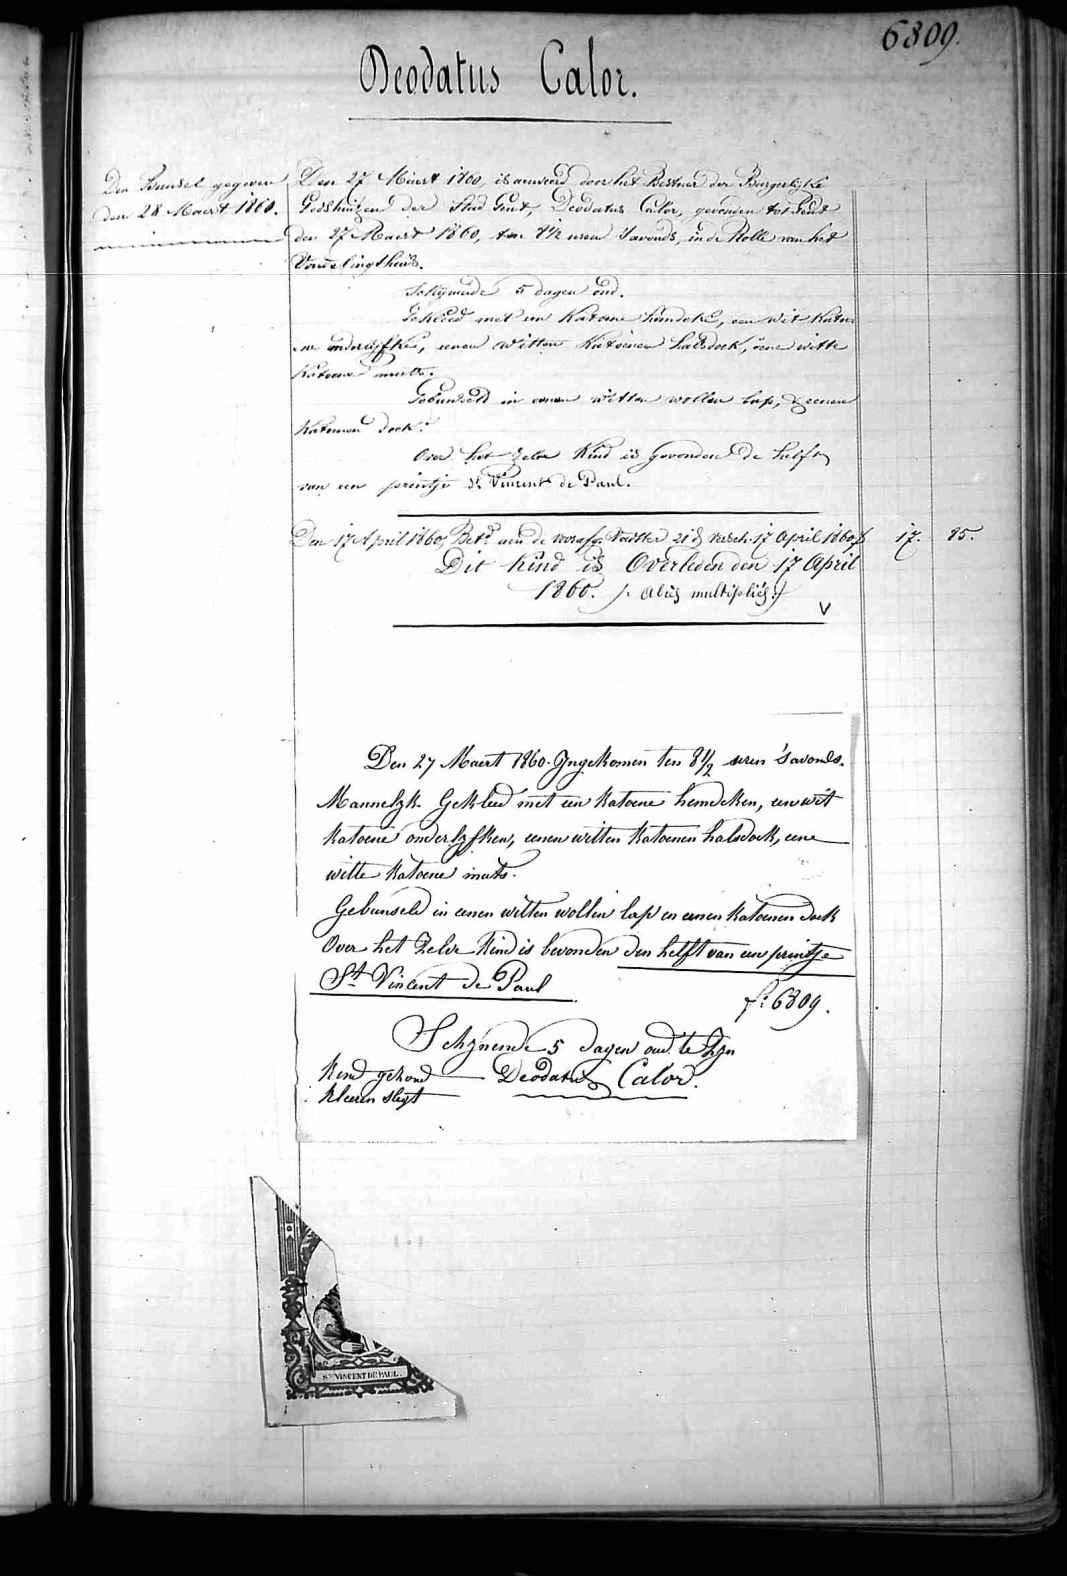 6809.
Deodatus Calor.
Den Bunsel gegeven
den 28 Maert 1860.
Den 27 Maert 1860, is aenveerd door het Bestuer der Burgerlyke
Godshuizen der Stad Gent, Deodatus Calor, gevonden tot Gent
den 27 Maert 1860, ten 8 1/2 uren 's avonds, in de Rolle van het
Vondelingshuis.
Schynende 5 dagen oud.
Gekleed met een katoene hemdeke, een wit katoe-
ne onderlyfke, eenen witten katoenen halsdoek, eene witte
katoene muts.
Gebunseld in eenen witten wollen lap, & eenen
katoenen doek.
Over het zelve kind is gevonden de helft
van een printje St. Vincent de Paul.
Den 17 April 1860, Bet. aen de voorsz. Voedster 21 d. versch. 17 April 1860 f 17. 85.
Dit kind is Overleden den 17 April
1860. /. Abcès multipliés ./
V
Den 27 Maert 1860. Ingekomen ten 8 1/2 uren 's avonds.
Mannelyk Gekleed met een katoene hemdeken, een wit
katoene onderlyfken, eenen witten katoenen halsdoek, eene
witte katoene muts.
Gebunseld in eenen witten wollen lap en eenen katoenen doek
Over het zelve kind is bevonden den helft van een printje
St Vincent de Paul
f: 6809.
Schynende 5 dagen oud te zyn
Kind gezond Deodatus Calor.
kleeren slegt
ST VINCENT DE PAUL.